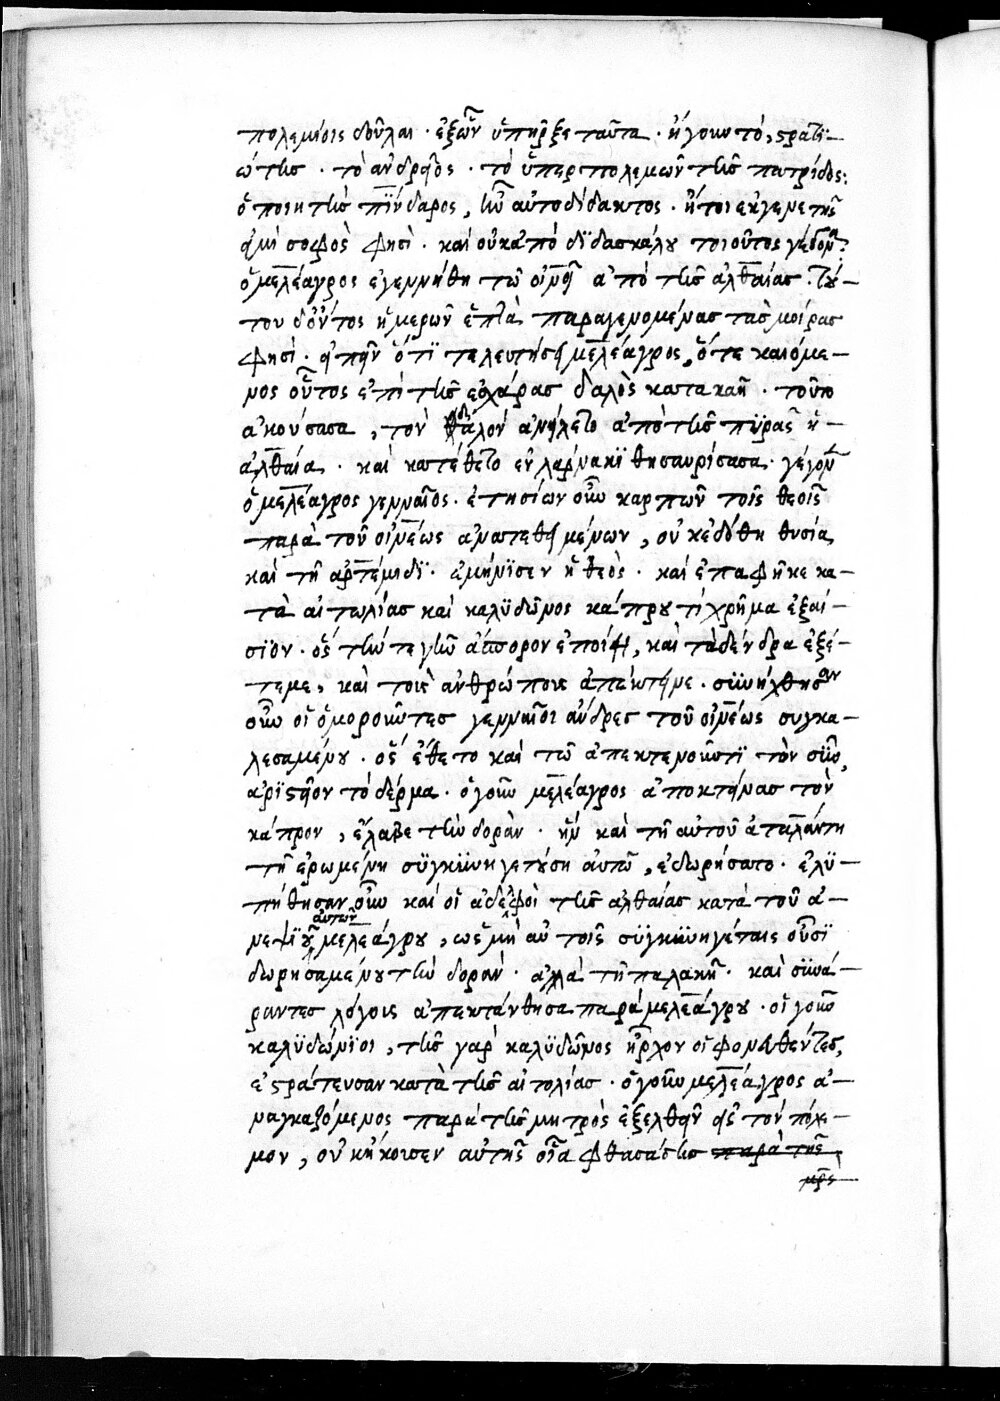 πολεμίοις δοῦλαι · ἐξὧν ὕπηρξε ταῦτα · ἤγουν τὸ, στρατϊ-
ώτης · τὸ ἀνδρεῖος · τὸ ὕπερ πολεμῶν τῆς πατρίδος:
ὁ ποιητὴς πΐνδαρος, ἦν αὐτοδίδακτος · ἤτοι ἐκγενετῆς
εἰμὶ σοφὸς φησὶ · καὶ οὐκ ἀπὸ δϊδασκάλου τοιοῦτος γέγονα:
ὁ μελέαγρος ἐγεννήθη τῶ οἰνεῖ ἀπὸ τῆς ἀλθαίας · τού-
του δ' ὄντος ἡμερῶν ἑπτὰ παραγενομένας τὰς μοίρας
φησὶ · εἰπεῖν ὅτϊ τελευτήσει μελέαγρος, ὅτε καιόμε-
νος οὗτος ἐπὶ τῆς ἐσχάρας δαλὸς κατακαῆ · τοῦτο
ἀκούσασα, τὸν δαλὸν ἀνείλετο ἀπὸ τῆς πϋρᾶς ἡ
ἀλθαία · καὶ κατέθετο ἐν λάρνακϊ θησαυρίσασα · γέγονε
ὁ μελέαγρος γενναῖος · ἐτησίων οὖν καρπῶν τοῖς θεοῖς
παρὰ τοῦ οἰνέως ἀνατεθειμένων, οὐκ ἐδόθη θυσία
καὶ τῆ ἀρτέμιδϊ · ἐμήνϊσεν ἡ θεὸς · καὶ ἐπαφῆκε κα-
τὰ αἰτωλίας καὶ καλϋδῶνος κάπρου τὶ χρῆμα ἐξαί-
σϊον · ὃς τήν τε γῆν ἄσπορον ἐποίει, καὶ τὰ δένδρα ἐξέ-
τεμε, καὶ τοὺς ἀνθρώπους ἀπέκτεινε · συνήχθησαν
οὖν οἱ ὁμοροῦντες γενναῖοι ἄνδρες τοῦ οἰνέως συγκα-
λεσαμένου · ὃς ἔθετο καὶ τῶ ἀπεκτενοῦντϊ τὸν σῦν,
ἀρϊστεῖον τὸ δέρμα · ὁ γοῦν μελέαγρος ἀποκτείνας τὸν
κάπρον, ἔλαβε τὴν δορὰν · ἣν καὶ τῆ αὐτοῦ ἀταλάντη
τῆ ἐρωμένη σϋγκϋνηγετούση αὐτῶ, ἐδωρήσατο · ἐλϋ-
πήθησαν οὖν καὶ οἱ ἀδελφοὶ τῆς ἀλθαίας κατὰ τοῦ ἀ-
νεψϊοῦ αὐτῶν μελεάγρου, ὡς μὴ αὐτοῖς σϋγκϋνηγέταις οὖσϊ
δωρησαμένου τὴν δορὰν · ἀλλὰ τῆ παλακῆ · καὶ συνά-
ραντες λόγοις ἀπεκτάνθησα παρὰ μελεάγρου · οἱ γοῦν
καλϋδώνϊοι, τῆς γὰρ καλϋδῶνος ἦρχον οἱ φονευθέντες,
ἐστράτευσαν κατὰ τῆς αἰτολίας · ὁ γοῦν μελέαγρος ἀ-
ναγκαζόμενος παρὰ τῆς μητρὸς ἐξελθεῖν εἰς τὸν πόλε-
μον, οὐκ ἤκουσεν αὐτῆς οἷα φθασάσης παρὰ τῆς
μρς